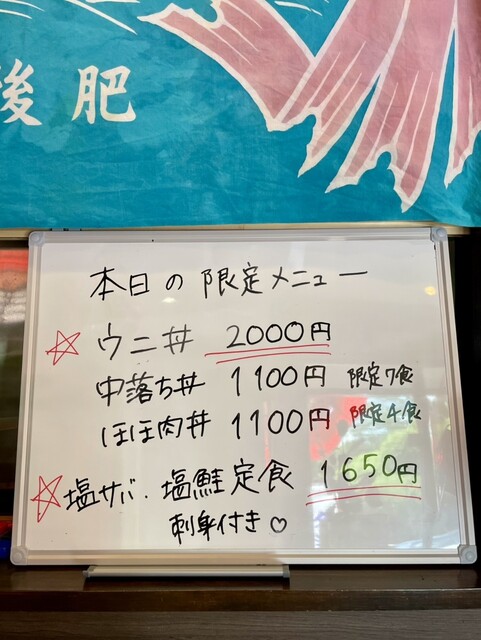 後肥
本日の限定メニュー
☆ ウニ丼 2000円
中落ち丼 1100円 限定7食
ほほ肉丼 1100円 限定4食
☆塩サバ.塩鮭定食 1650円
刺身付き♡